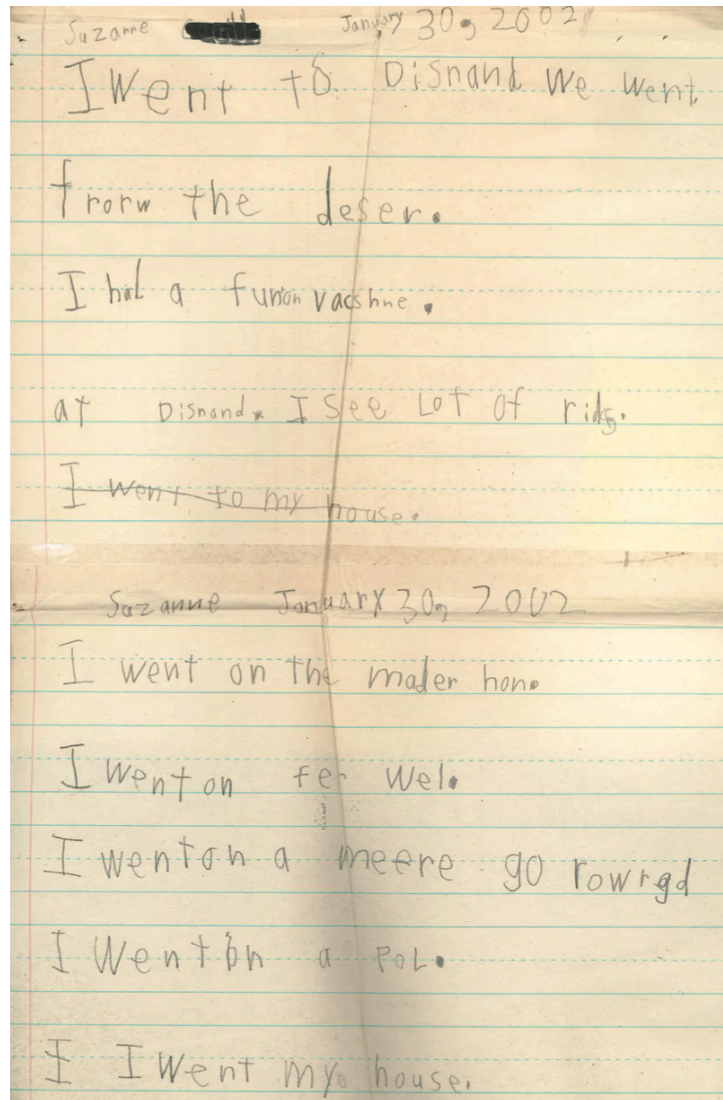 Suzanne January 30, 2002
I Went to Disnand we went
frorm the deser.
I had a funon vacshne.
at Disnand. I see Lot of rids.
I went to my house.
Suzanne January 30, 2002
I went on the mater hon.
I went on fer wel.
I went on a meere go rowrgd
I Went on a POL.
I I Went my house.